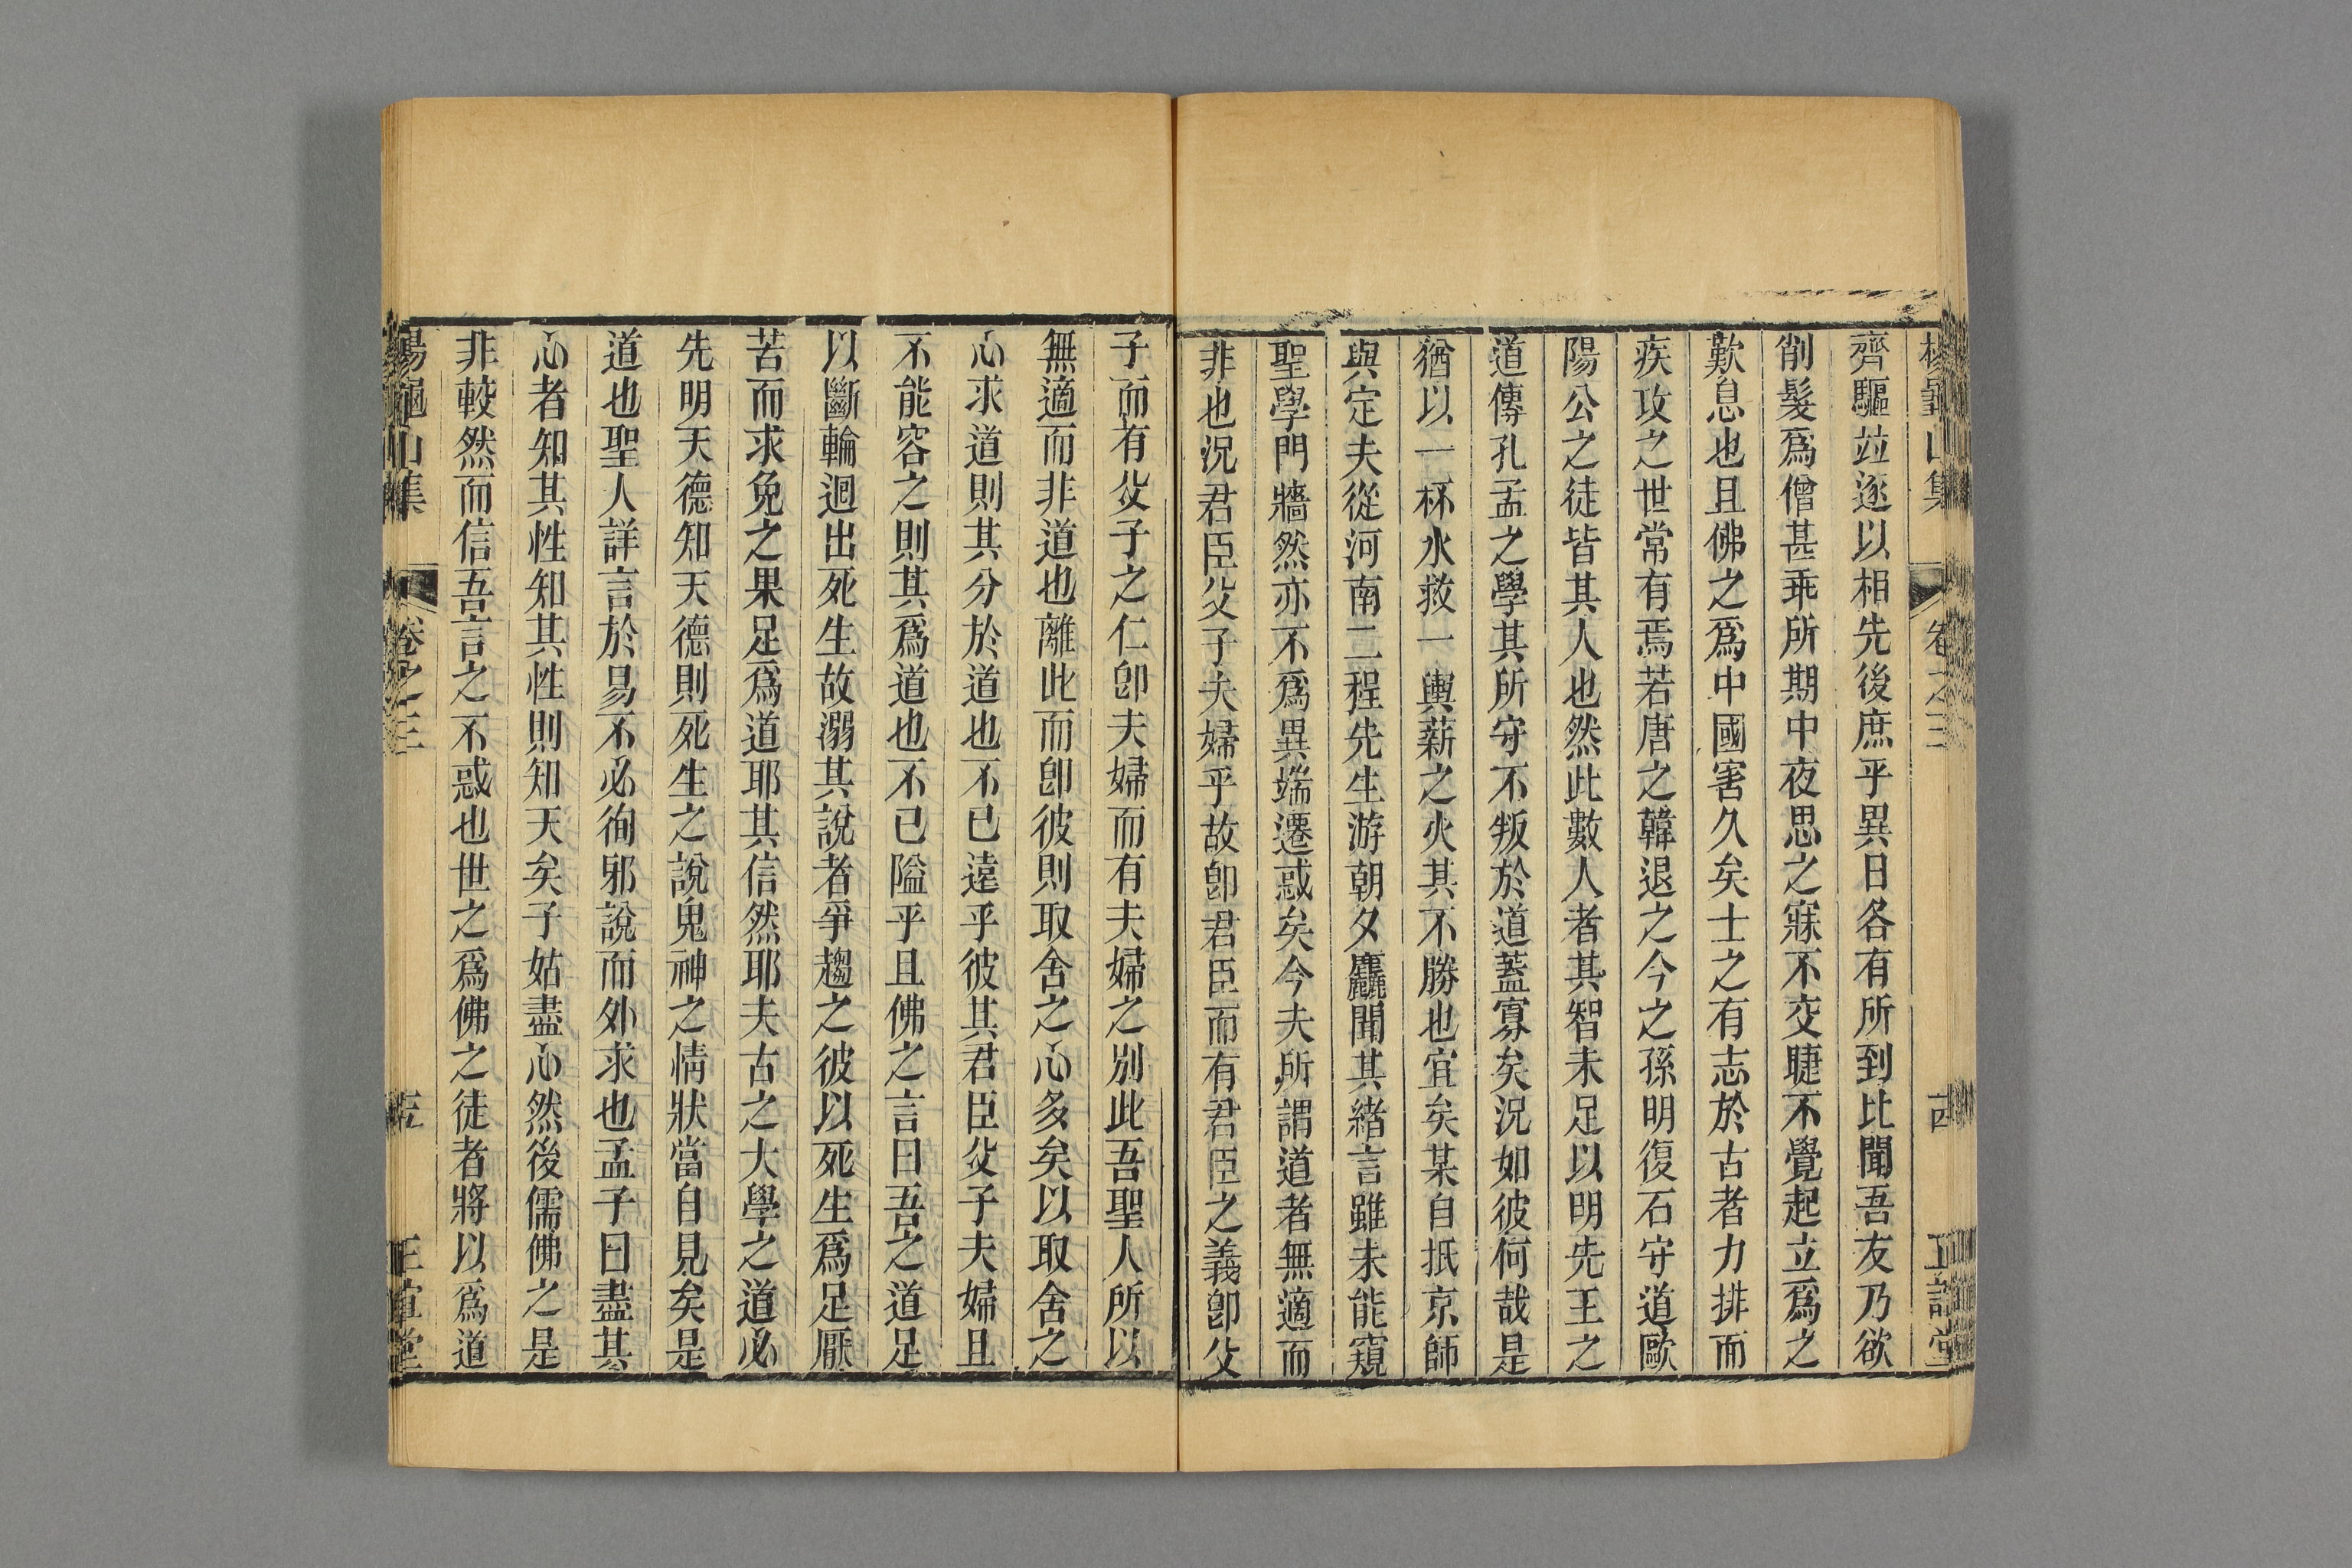 楊龜山集 卷之三 十四 正誼堂
齊驅竝逐以相先後庶乎異日各有所到比聞吾友乃欲
削髮爲僧甚乖所期中夜思之寐不交睫不覺起立爲之
歎息也且佛之爲中國害久矣士之有志於古者力排而
疾攻之世常有焉若唐之韓退之今之孫明復石守道歐
陽公之徒皆其人也然此數人者其智未足以明先王之
道傳孔孟之學其所守不叛於道蓋寡矣況如彼何哉是
猶以一杯水救一輿薪之火其不勝也宜矣某自抵京師
與定夫從河南二程先生游朝夕麤聞其緒言雖未能窺
聖學門牆然亦不爲異端遷惑矣今夫所謂道者無適而
非也況君臣父子夫婦乎故卽君臣而有君臣之義卽父
子而有父子之仁卽夫婦而有夫婦之別此吾聖人所以
無適而非道也離此而卽彼則取舍之心多矣以取舍之
心求道則其分於道也不已遠乎彼其君臣父子夫婦且
不能容之則其爲道也不已隘乎且佛之言曰吾之道足
以斷輪迴出死生故溺其說者爭趨之彼以死生爲足厭
苦而求免之果足爲道耶其信然耶夫古之大學之道必
先明天德知天德則死生之說鬼神之情狀當自見矣是
道也聖人詳言於易不必徇邪說而外求也孟子曰盡其
心者知其性知其性則知天矣子姑盡心然後儒佛之是
非較然而信吾言之不惑也世之爲佛之徒者將以爲道
楊龜山集 卷之三 正誼堂